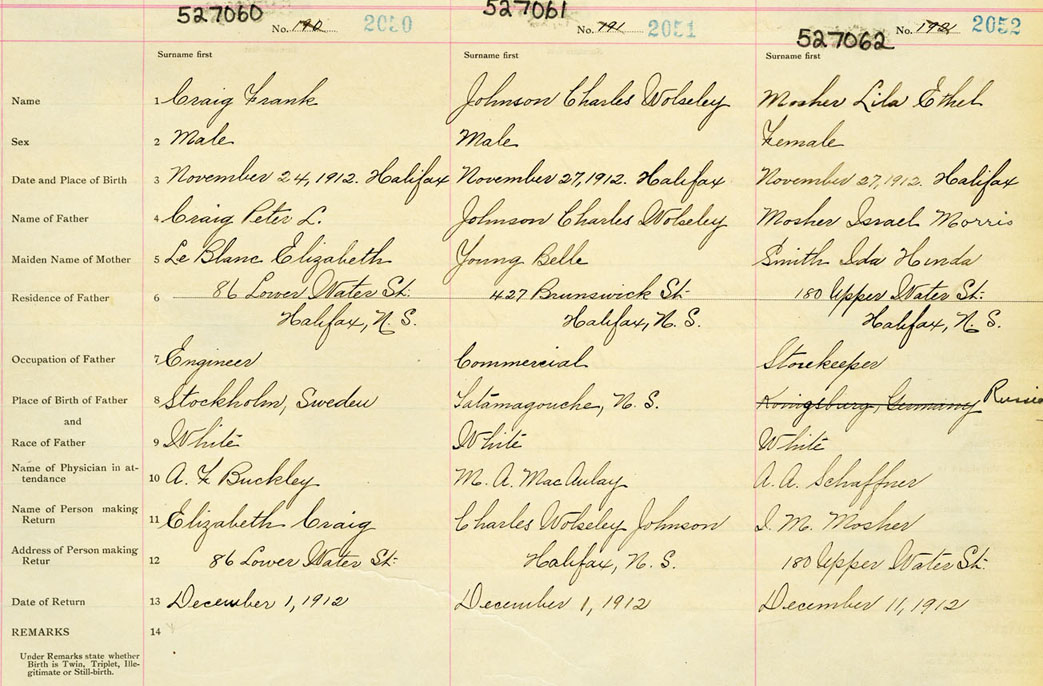 527060 527061 527062
No. 190 2050 No. 791 2051 No. 192 2052
Surname first Surname first Surname first
Name 1 Craig Frank Johnson Charles Wolseley Mosher Lila Ethel
Sex 2 Male Male Female
Date and Place of Birth 3 November 24, 1912. Halifax November 27, 1912. Halifax November 27, 1912. Halifax
Name of Father 4 Craig Peter L. Johnson Charles Wolseley Mosher Israel Morris
Maiden Name of Mother 5 Le Blanc Elizabeth Young Belle Smith Ida Hinda
Residence of Father 6 86 Lower Water St. 427 Brunswick St. 180 Upper Water St.
Halifax, N. S. Halifax, N. S. Halifax, N. S.
Occupation of Father 7 Engineer Commercial Storekeeper
Place of Birth of Father 8 Stockholm, Sweden Tatamagouche, N. S. Konigsburg, Germany Russia
and
Race of Father 9 White White White
Name of Physician in at-
tendance 10 A. F. Buckley M. A. MacAulay A. A. Schaffner
Name of Person making
Return 11 Elizabeth Craig Charles Wolseley Johnson I. M. Mosher
Address of Person making
Retur 12 86 Lower Water St. Halifax, N. S. 180 Upper Water St.
Date of Return 13 December 1, 1912 December 1, 1912 December 11, 1912
REMARKS 14
Under Remarks state whether
Birth is Twin, Triplet, Ille-
gitimate or Still-birth.